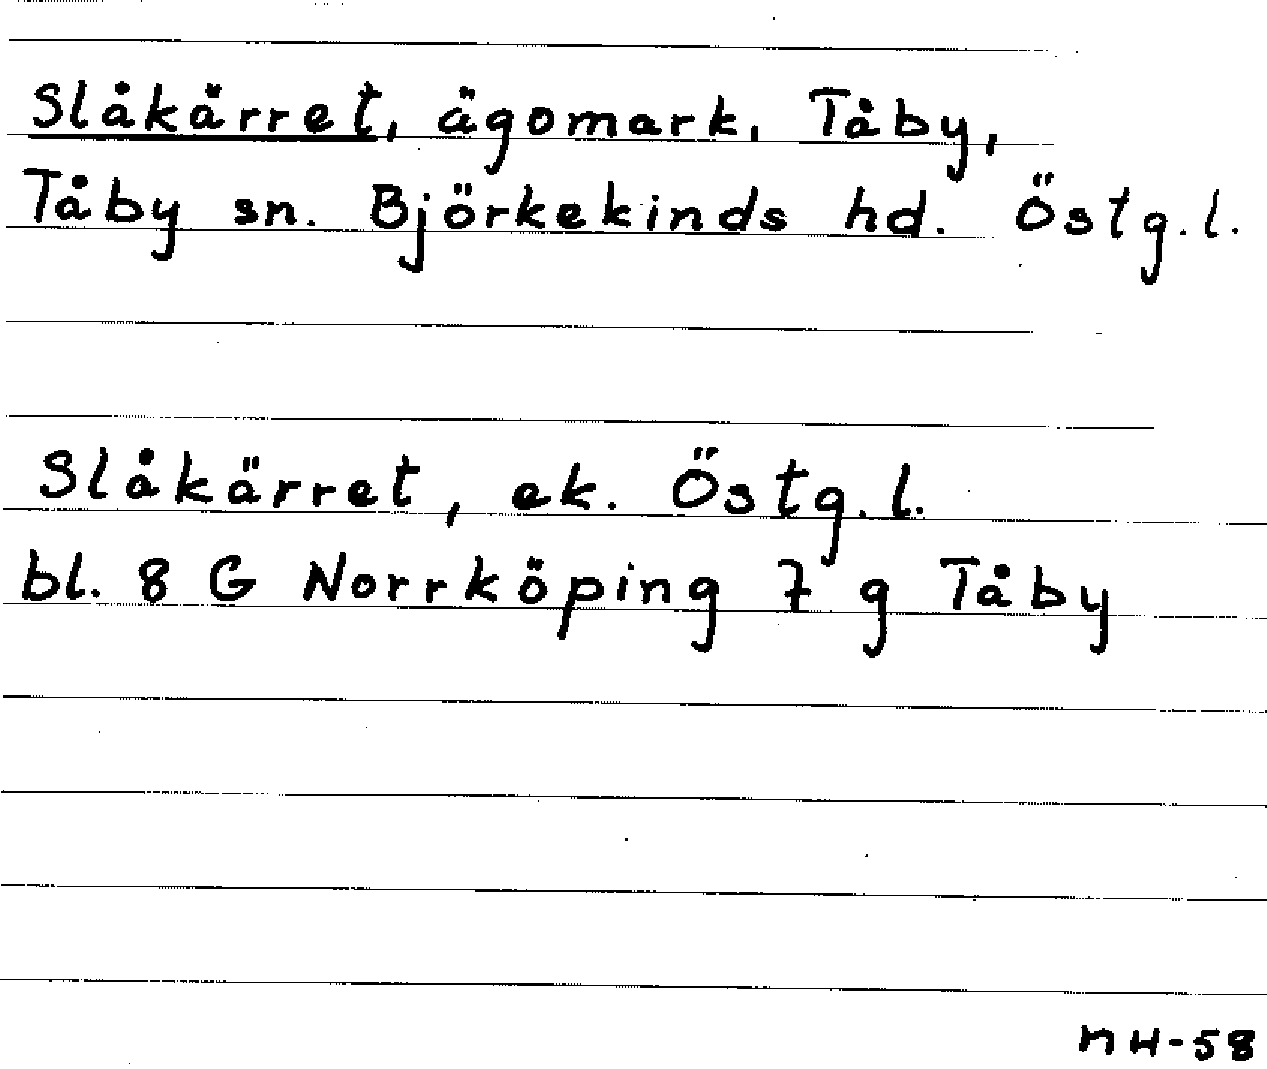 Slåkärret, ägomark, Tåby,
Tåby sn. Björkekinds hd. Östg.l.
Slåkärret, ek. Östg.l.
bl. 8 G Norrköping 7 g Tåby
nH-58